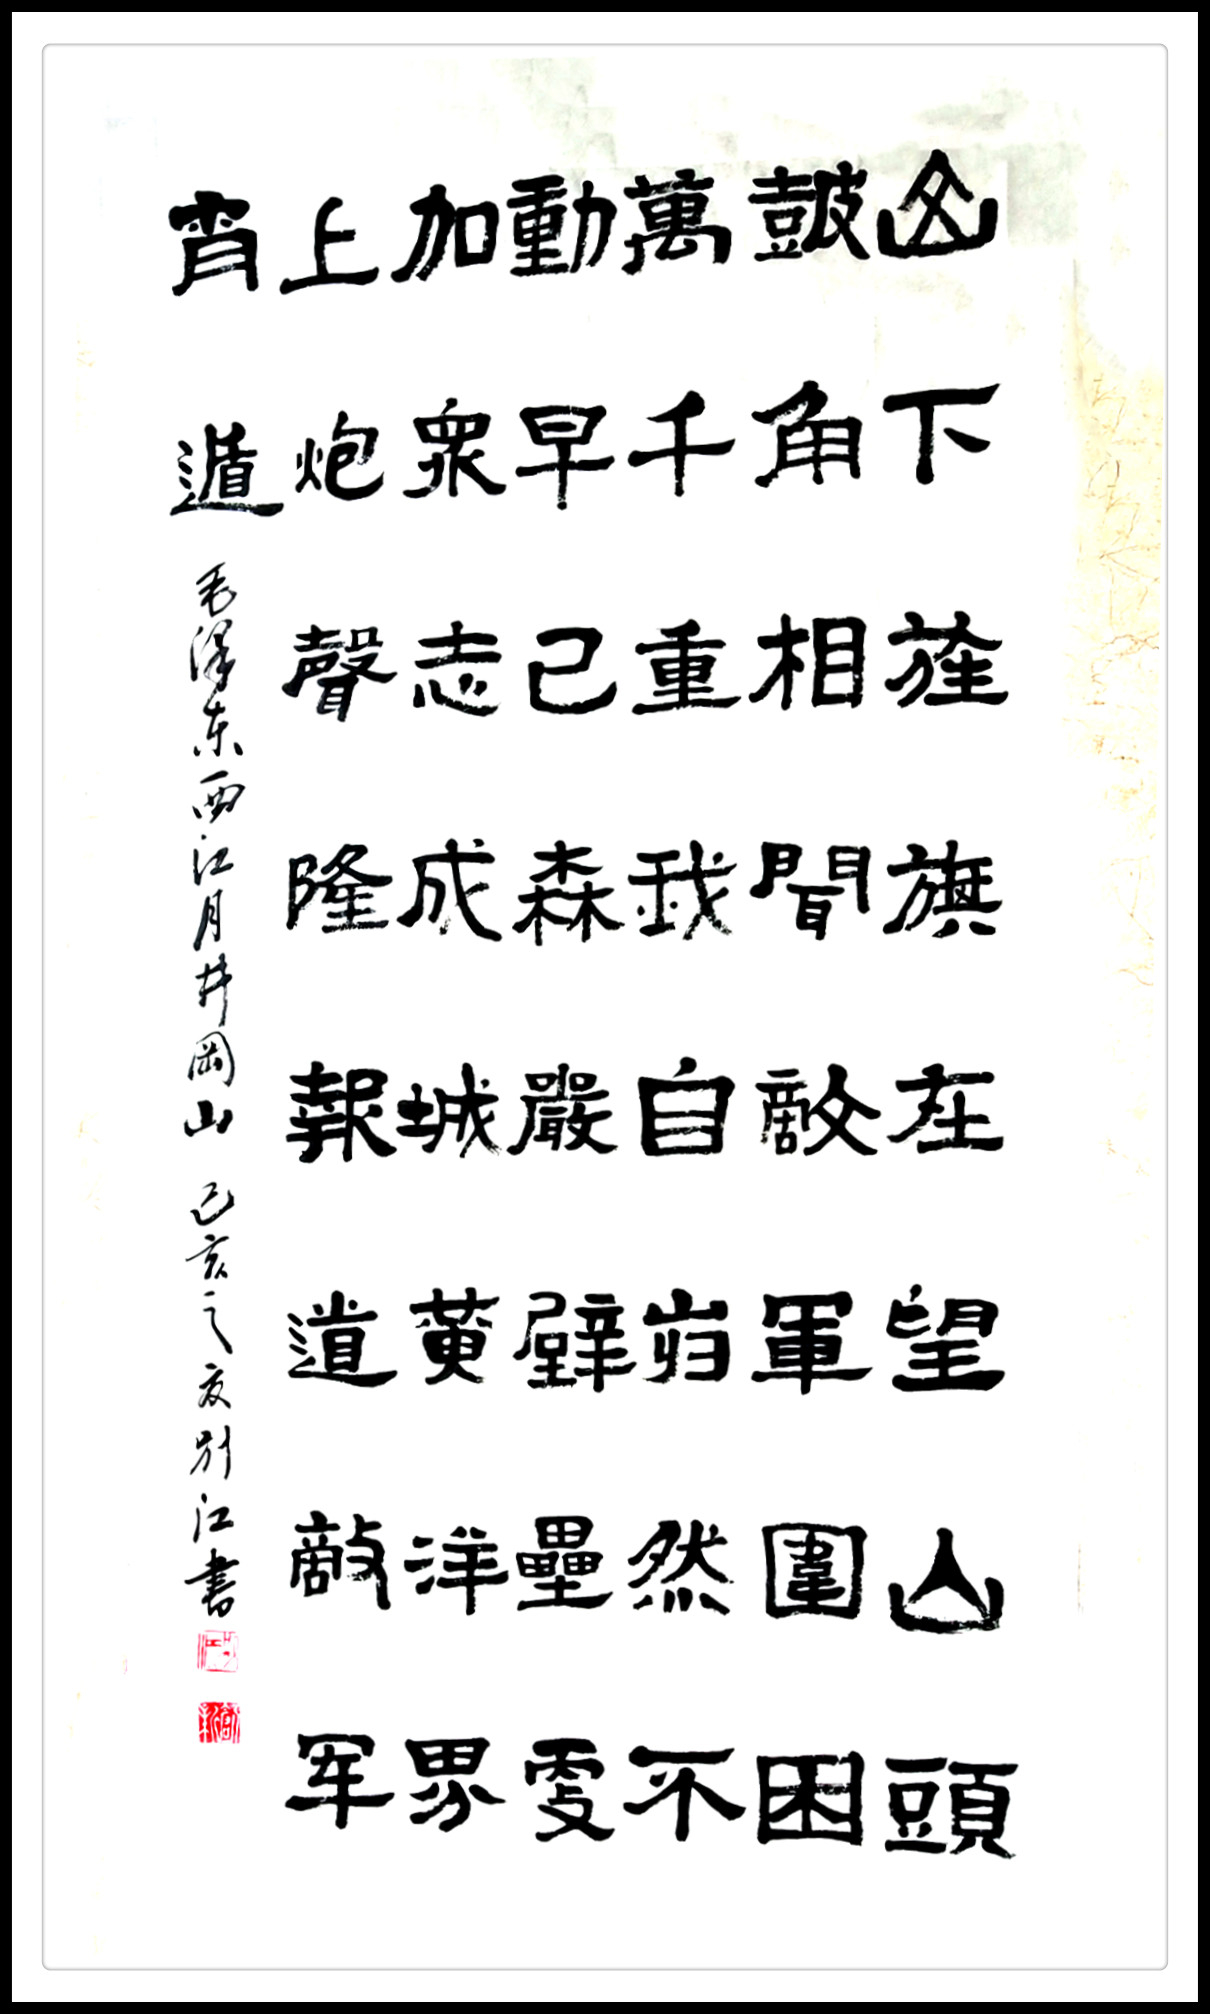 山下旌旗在望山頭
皷角相聞敵軍圍困
萬千重我自岿然不
動早已森嚴壁壘更
加衆志成城黄洋界
上炮聲隆報道敵军
宵遁
毛泽东西江月井岡山 己亥之夏别江書